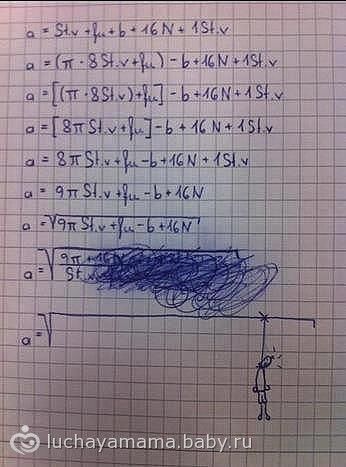 a = St.v + fu + b + 16N + 1St.v
a = (π · 8St.v + fu) - b + 16N + 1St.v
a = [(π · 8St.v) + fu] - b + 16N + 1St.v
a = [8π St.v + fu] - b + 16N + 1St.v
a = 8π St.v + fu - b + 16N + 1St.v
a = 9π St.v + fu - b + 16N
a = √9π St.v + fu - b + 16N
a = √9π + 16N
St.v
a = √
luchayamama.baby.ru